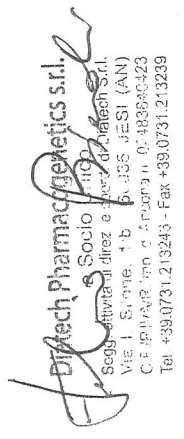 Diatech Pharmacogenetics s.r.l.
Socio
Sogg. attività di direz e coord. di Diatech S.r.l.
Via 60035 JESI (AN)
C.F./P.IVA/R. Imp. di Ancona n.
Tel +39.0731.213243 - Fax +39.0731.213239